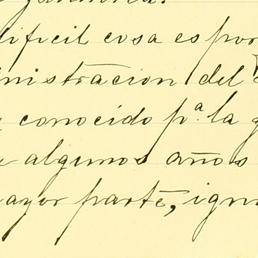 dificil cosa es por
nistracion del
conocido pª la g
algunos años
ayor parte, ign